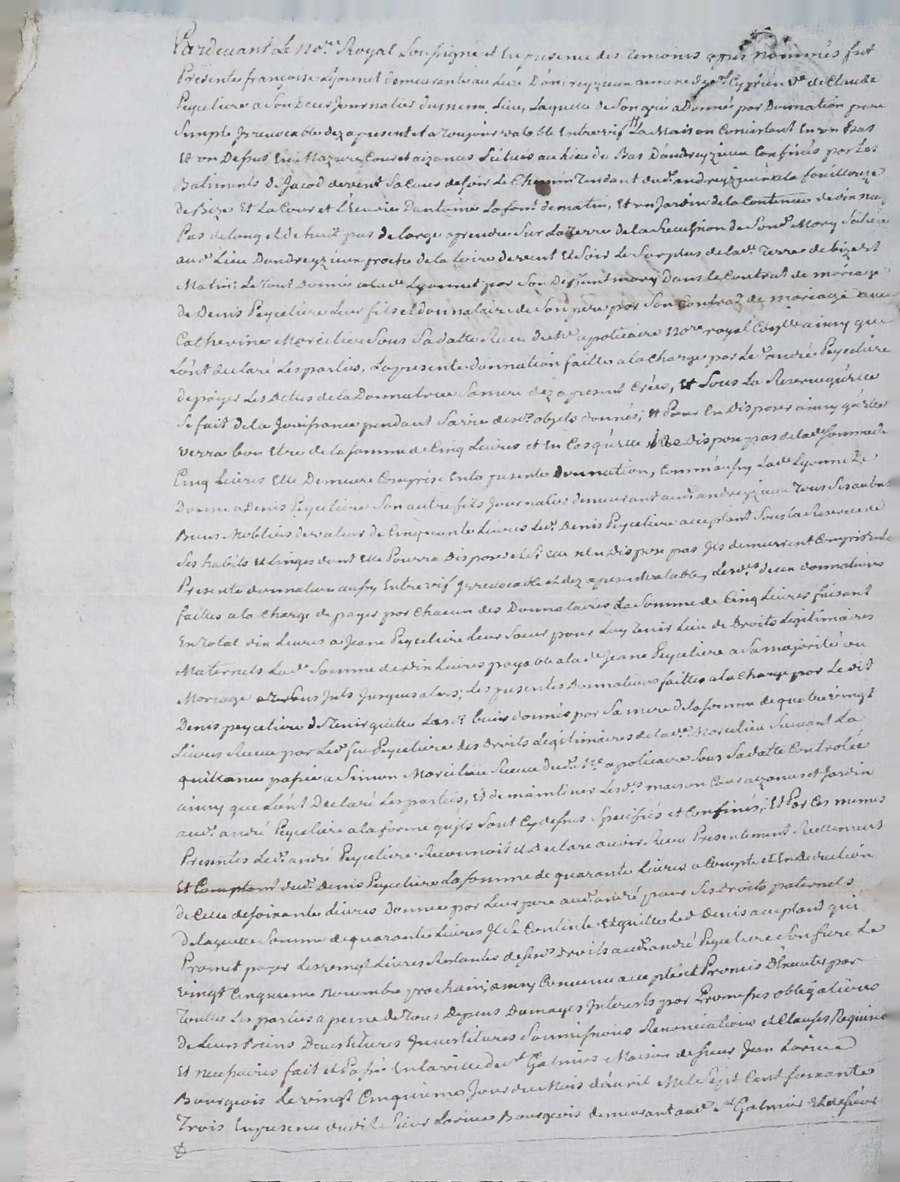 Pardevant Le No.re Royal Soussigné et En presence des temoins apres nommés fut
Presente françoise Lyonnet demeurante au lieu D'andreyzieux St Cyprien Ve de Claude
Peyceliere a Son Deces Journalier dumeme Lieu, Laquelle de Son gré a Donné par Donnation pure
Simple Irrevocable dez apresent et a Toujour valable Entrevif La Maison Consistant En un Bas
Et un Dessus En Mazure Cour et aizances Situés au lieu du Bas Dandreyzieux Confinés par Les
Batiments de Jacod devent Sa Cour de Soir Le Chemin Tendant dud. andreyzieux a la fouillouze
de Bize Et La Cour et L'Ecurie D'antoine Lafont de matin, Et un Jardin de la Contenue de dix neuf
Pas de long et de huit pas de large aprendre Sur La Terre de la Succession de Sond. Mary Scituée
aud. Lieu Dandreyzieux proche de la Loire de vent Et Soir Le Surplus de lad. Terre de bize Et
Matin; Le Tout Donné a lad. Lyonnet par Son Deffunt mary Dans le Contrat de mariage
de Denis Peyceliere Leur fils et donnataire de Son pere par Son Contrat de mariage avec
Catherine Marcilieu Sous Sa datte Receu de Me apoticaire No.re royal ainsy que
L'ont declaré Les parties, La presente donnation faitte a la Charge par Led. andré Peyceliere
de payer Les Dettes de la Donnatrice Sa mere dez apresent Créés, Et Sous La Reserve qu'elle
Se fait de la Jouissance pendant Sa vie desd. objets donnés; Et Pour En Disposer ainsy qu'elle
verra bon Etre de la somme de Cinq Livres et En Cas qu'elle ne dispose pas de lad. Somme de
Cinq Livres Elle Demeure Comprise En la presente Donnation, Comm'aussy Lad. Lyonnet
Donne a Denis Peyceliere Son autre fils Journalier demeurant aud. andreyzieux Tous Ses autres
Biens Mobliers de valeur de Cinquante Livres Led. Denis Peyceliere acceptant Sous la Reserve de
Ses habits Et Linges dont Elle Pourra Disposer et Si Elle n'En Dispose pas Ils demeurent Compris En la
Presente donnation aussy Entre vif Irrevocable et dez apresent valable, Lesd. deux donnations
faittes a la Charge de payer par Chacun des Donnataires La Somme de Cinq Livres faisant
En Total dix Livres a Jeane Peyceliere Leur Sœur pour Luy Tenir Lieu de Droits Legitimaires
Maternels Lad. Somme de dix Livres payable a lad. Jeane Peyceliere a Sa majorité ou
Mariage Jusques alors; Les presentes Donnations faittes a la Charge par Le dit
Denis peyceliere de Tenir quitte Lesd. biens donnés par Sa mere de la somme de quatre vingt
Livres Receue par Led. feu Peyceliere des Droits Legitimaires de lad. Marcilieu Suivant La
quittance passée a Simon Marcilieu Receue dud. Me apoticaire Sous Sa datte Controlée
ainsy que L'ont Declaré Les parties, Et de maintenir Lesd. maison Cour aizances et Jardin
aud. andré Peyceliere a la forme qu'ils Sont Cy dessus Specifiés et Confinés; Et Par Ces memes
Presentes Led. andré Peyceliere Reconnoit et Declare avoir Receu Presentement Reellement
Et Comptant dud. Denis Peyceliere La somme de quarante Livres a Compte et En Deduction
de Celle de Soixante Livres Donnée par Leur pere aud. andré pour Ses droits paternels
de laquelle Somme de quarante Livres Il Se Contente Et quitte Led. Denis acceptant qui
Promet payer Les vingt Livres Restantes desd. Droits aud. andré Peyceliere Son frere Le
vingt Cinquieme Novembre prochain; ainsy Convenu accepté et Promis D'Executer par
Toutes Les parties a peine de Tous Depens Domages Interests par Promesses obligations
de Leurs Biens Devestitures Investitures Soumissions Renonciations et Clauses Requises
Et necessaires fait et Passé En la ville de St Galmier Maison de Sieur Jean Larive
Bourgeois Le vingt Cinquieme Jour du Mois d'avril Mil Sept Cent Soixante
Trois En presence dudit Sieur Larive Bourgeois demeurant aud. St Galmier Et de Sieur